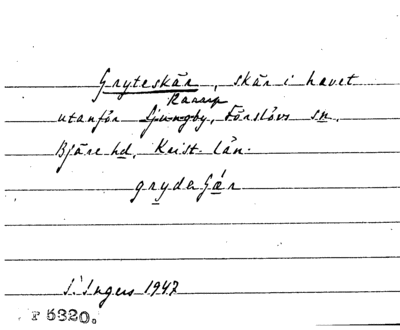 Gryteskär, skär i havet
Ramsjö
utanför Ljungby, Förslövs sn.
Bjäre hd, Krist. län.
grydeʃǽr
I. Ingers 1947
F 5320.